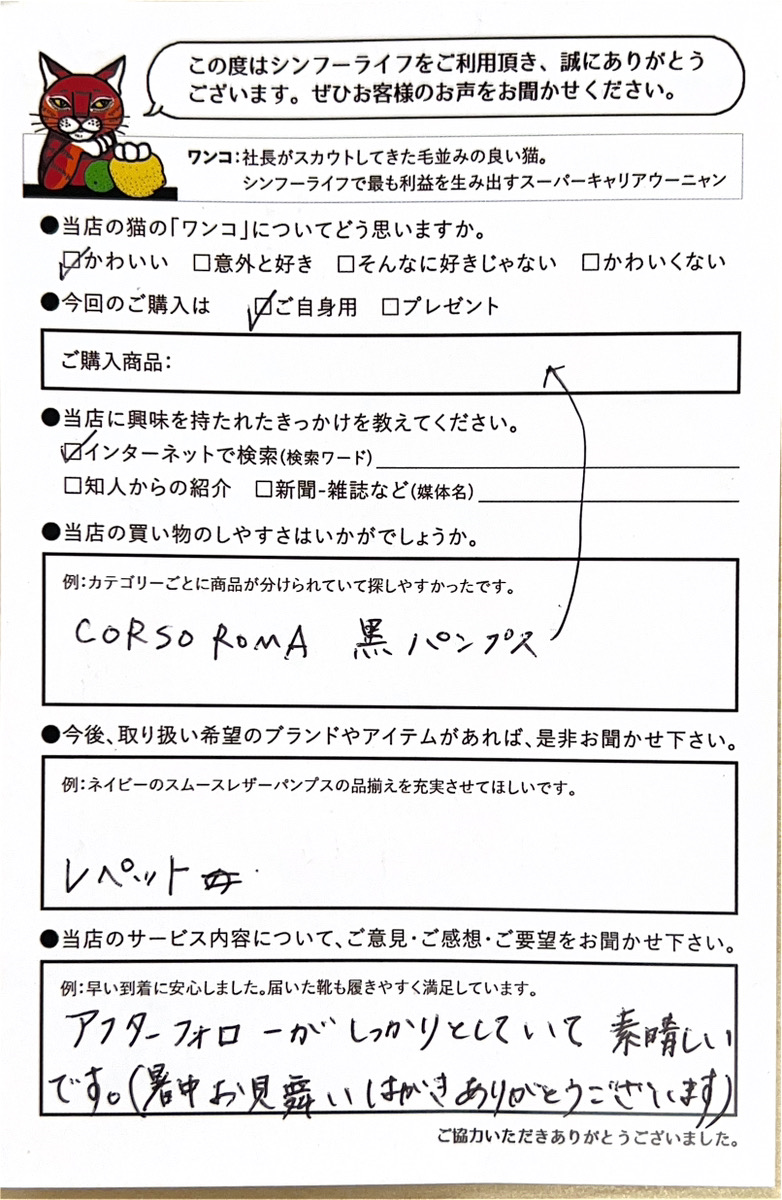 この度はシンフーライフをご利用頂き、誠にありがとう
ございます。ぜひお客様のお声をお聞かせください。
ワンコ：社長がスカウトしてきた毛並みの良い猫。
シンフーライフで最も利益を生み出すスーパーキャリアウーニャン
●当店の猫の「ワンコ」についてどう思いますか。
☑かわいい □意外と好き □そんなに好きじゃない □かわいくない
●今回のご購入は ☑ご自身用 □プレゼント
ご購入商品：
●当店に興味を持たれたきっかけを教えてください。
☑インターネットで検索(検索ワード)
□知人からの紹介 □新聞-雑誌など(媒体名)
●当店の買い物のしやすさはいかがでしょうか。
例：カテゴリーごとに商品が分けられていて探しやすかったです。
CORSO ROMA 黒パンプス
●今後、取り扱い希望のブランドやアイテムがあれば、是非お聞かせ下さい。
例：ネイビーのスムースレザーパンプスの品揃えを充実させてほしいです。
レペット
●当店のサービス内容について、ご意見・ご感想・ご要望をお聞かせ下さい。
例：早い到着に安心しました。届いた靴も履きやすく満足しています。
アフターフォローがしっかりとしていて 素晴しい
です。(暑中お見舞いはがきありがとうございます)
ご協力いただきありがとうございました。